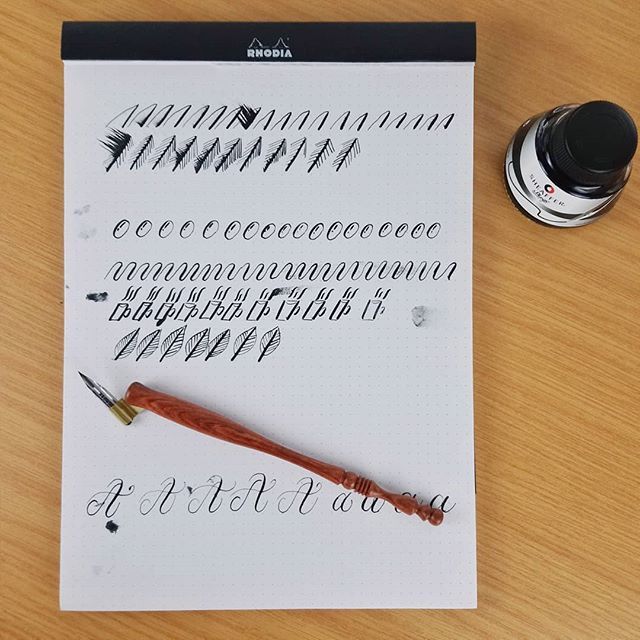 RHODIA
SHEAFFER
O O O O O O O O O O O O O O O O O O
A A A A A a a a a